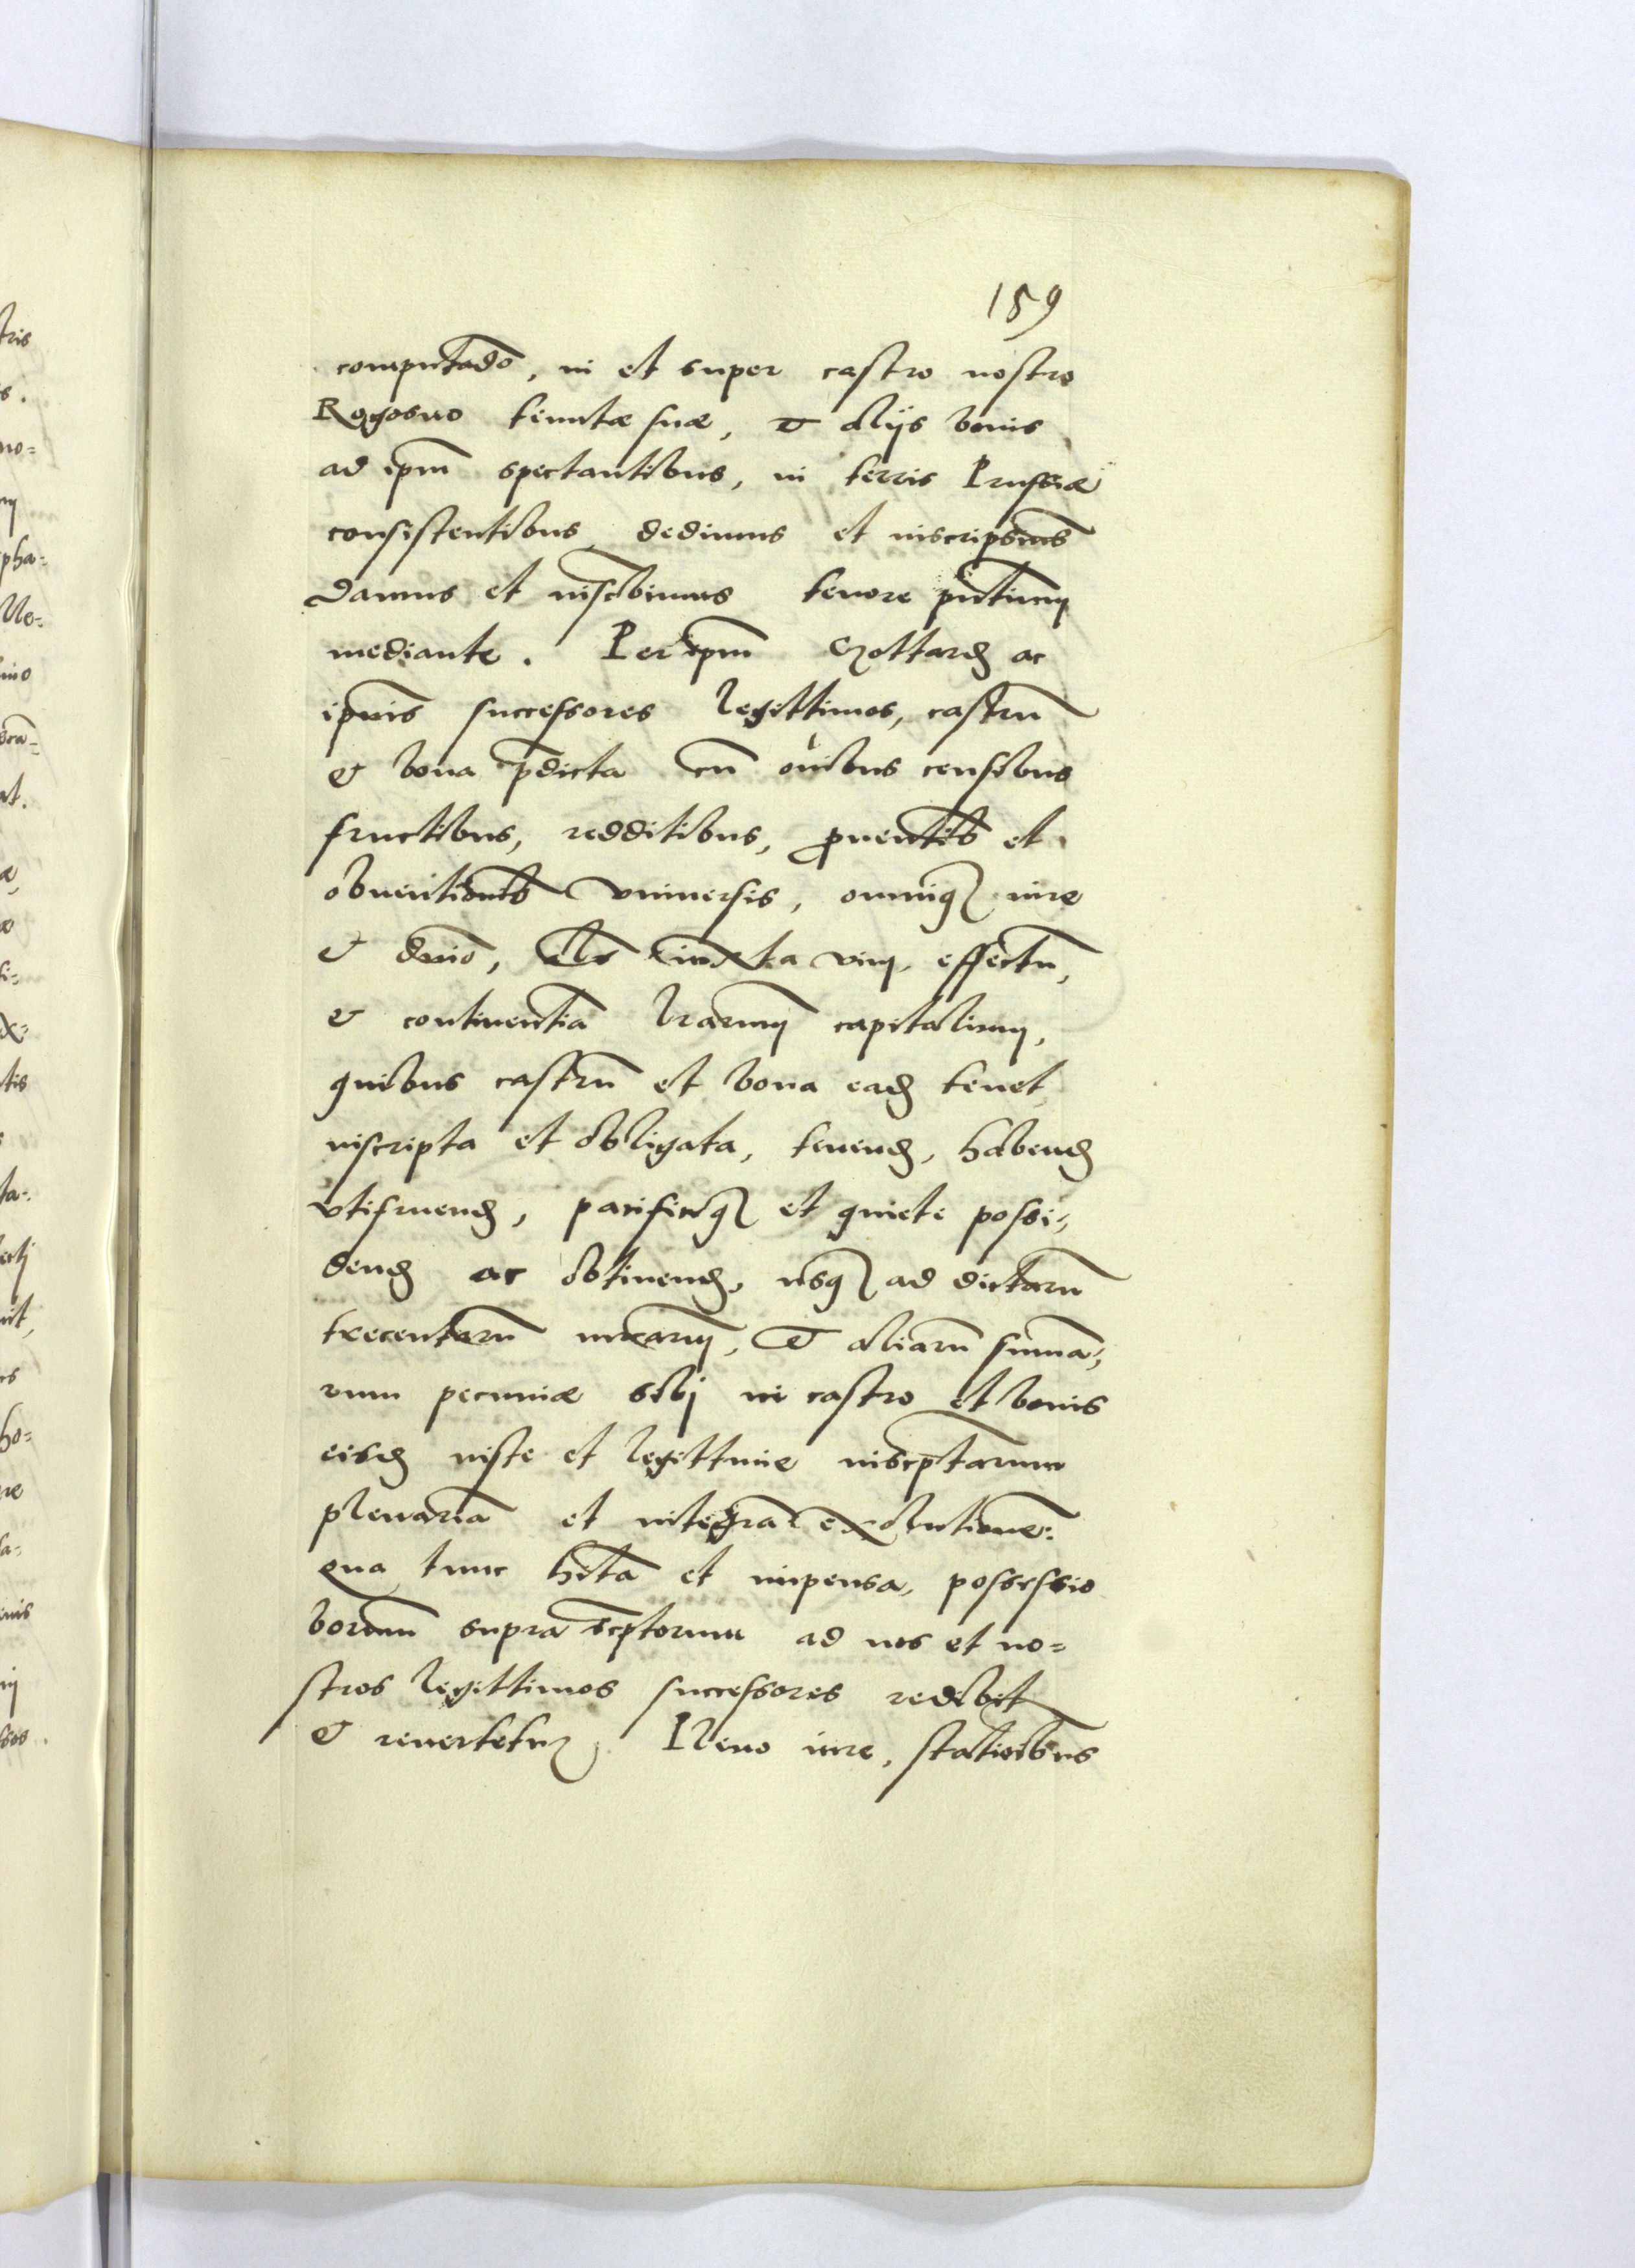 159
computādo, in et super castro nostro
Rogosno tenutæ suæ, et alijs bonis
ad ipm̄ spectantibus, in terris Prussiæ
consistentibus dedimus et inscripsim̄s
Damus et inscrībimus tenore pn̄tium
mediante. Per ipm̄ Czottardȝ ac
ipīus successores legittimos, castrū
et bona p̄dicta cū oībus censibus
fructibus, redditibus, ꝓuentib̄ et
obuentionib̄ vniuersis, omniqȝ iure
et dn̄io, als̄ iuxta vim, effectū,
et continentiā lr̄arum capitalium,
quibus castrū et bona eadȝ tenet
inscripta et obligata, tenendȝ, habendȝ
vtifruendȝ, pacificeqȝ et quiete possi,
dendȝ ac obtinendȝ, usqȝ ad dictarū
trecentarū mrcarum, et aliarū summa,
rum pecuniæ sibj in castro et bonis
eisdȝ iuste et legittime inscrp̄tarum
plenariā et integrā exolutionē:
qua tunc hītā et impensa, possessio
bonorum supra scrp̄torum ad nos et no=
stros legittimos successores redibit
et reuertetur. Pleno iure, stationibus